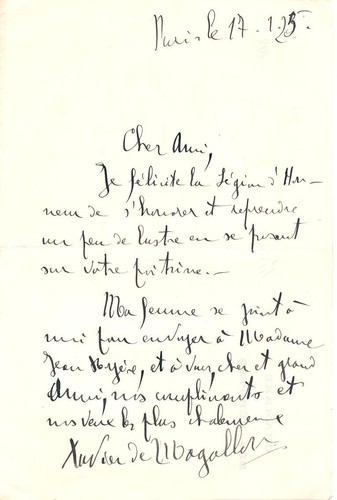 Paris le 17.1.25.
Cher Ami,
Je félicite la Légion d'Hon-
neur de s'honorer et reprendre
un peu de lustre en se posant
sur votre poitrine.-
Ma femme se joint à
moi pour envoyer à Madame
Jean Royère, et à vous, cher et grand
Ami, nos compliments et
nos vœux les plus chaleureux
Xavier de Magallon